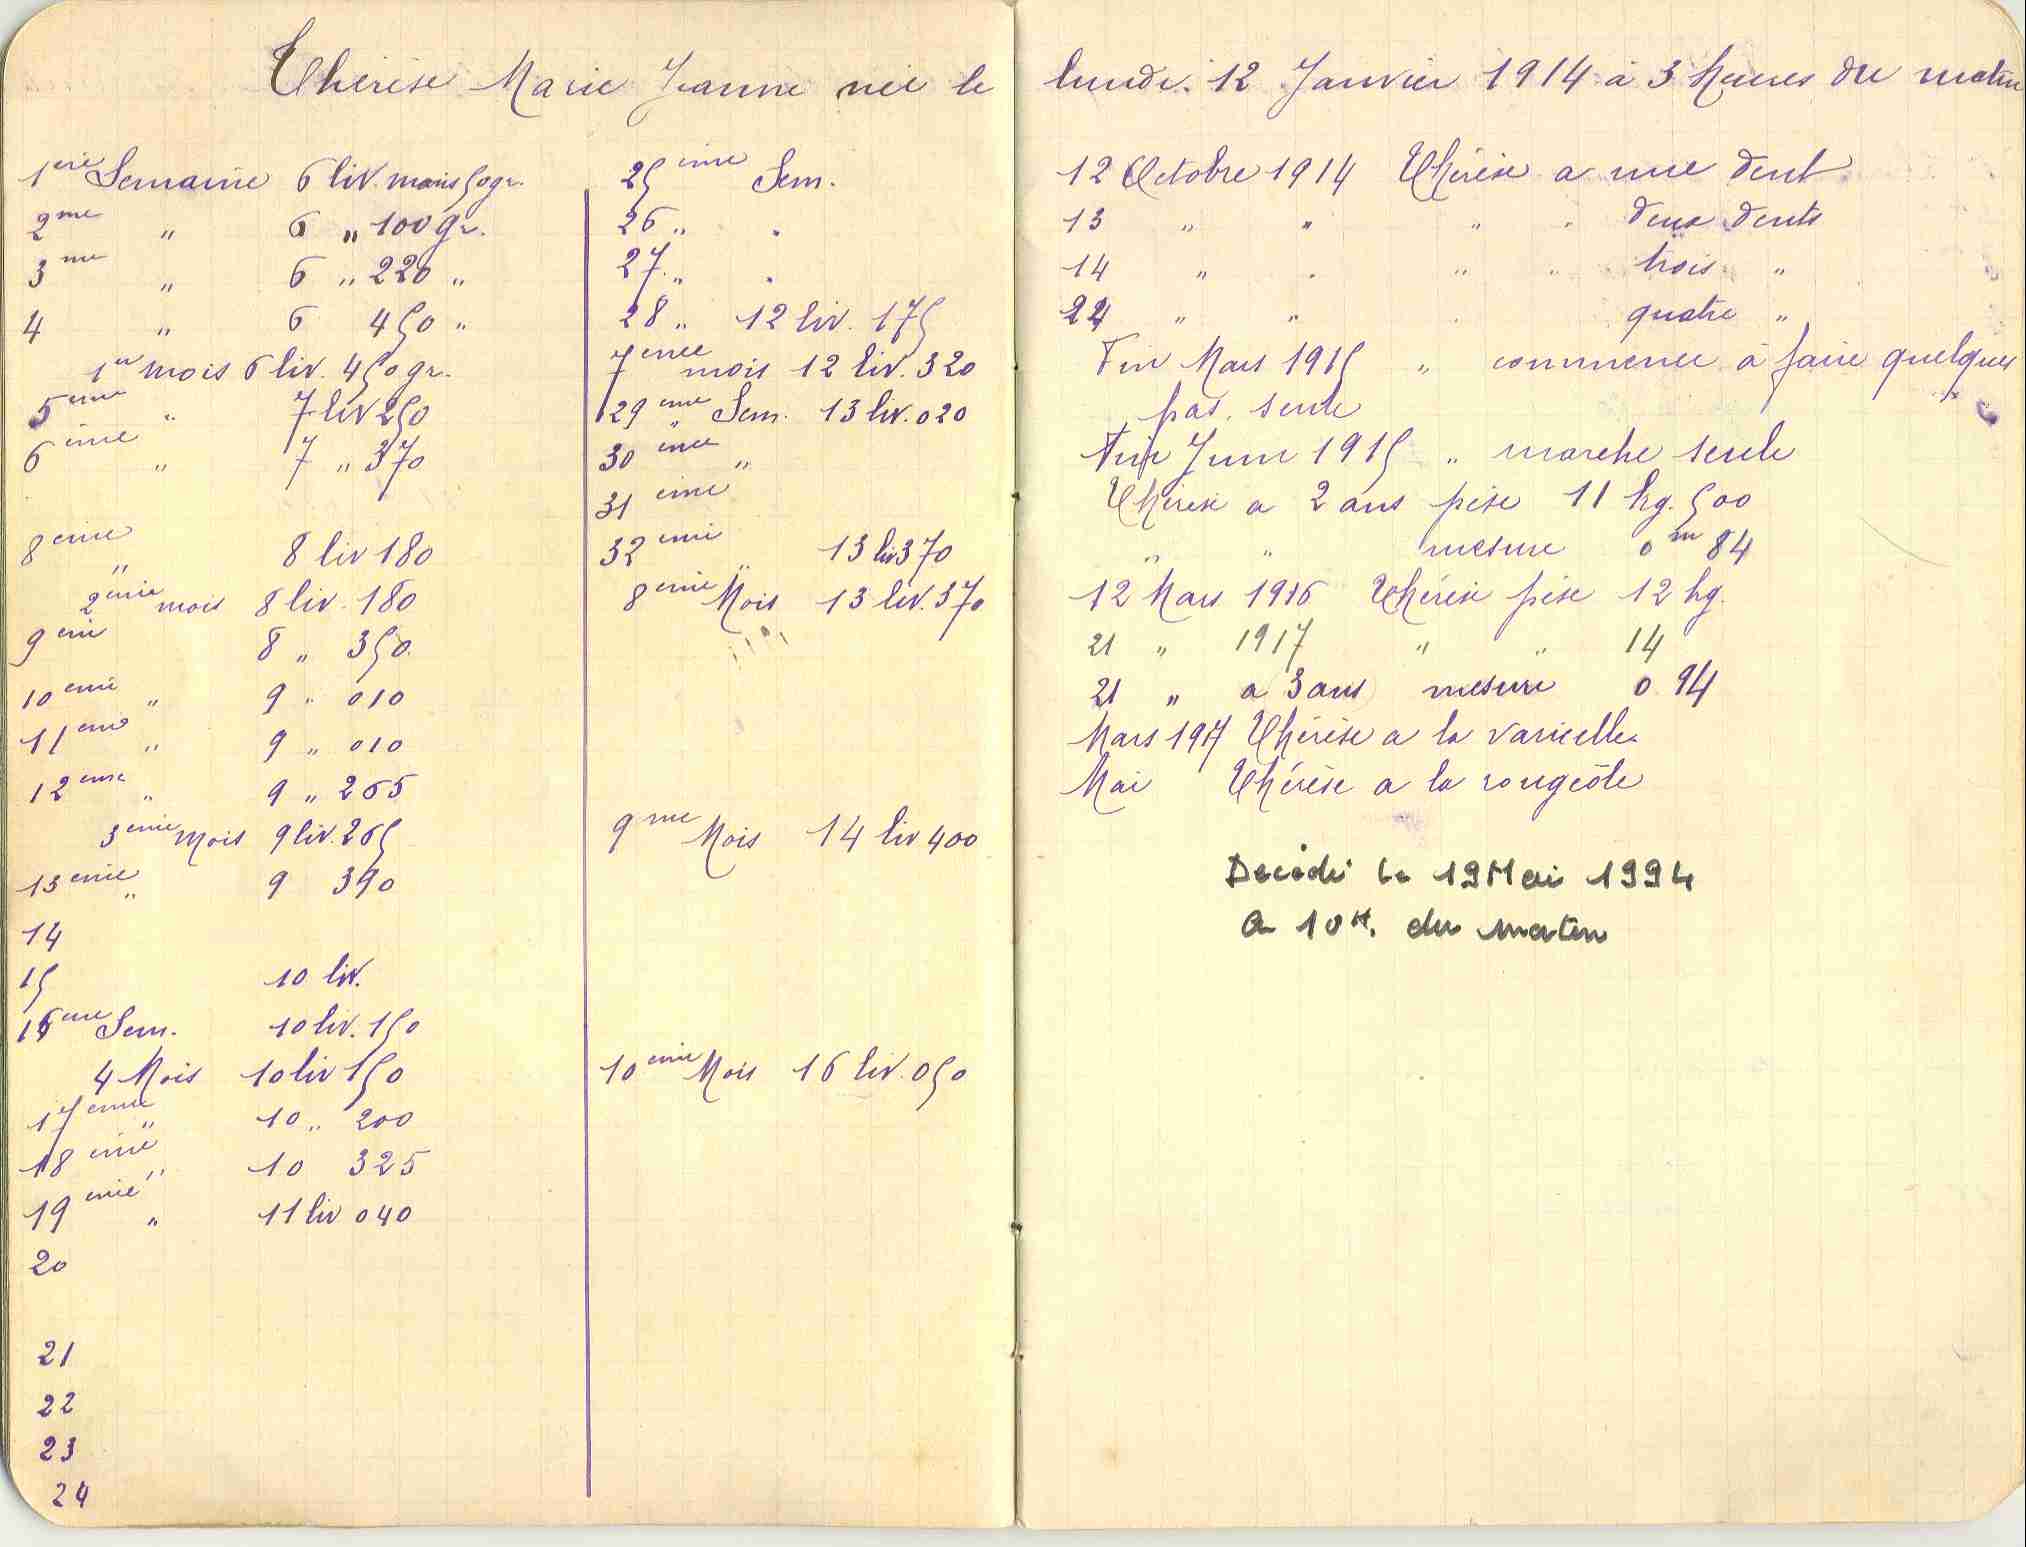 Thérèse Marie Jeanne née le lundi 12 Janvier 1914 à 3 heures du matin
1ère Semaine 6 liv. moins 50gr.
2me " 6 " 100 gr.
3me " 6 " 220 "
4 " 6 450 "
1er mois 6 liv. 450 gr.
5eme " 7 liv 250
6ème " 7 " 370
8eme " 8 liv 180
2ème mois 8 liv. 180
9eme 8 " 350
10eme " 9 " 010
11eme " 9 " 010
12eme " 9 " 265
3eme mois 9 liv. 265
13eme " 9 390
14
15 10 liv.
16eme Sem. 10 liv. 150
4 Mois 10 liv 150
17eme " 10 " 200
18ème " 10 325
19ème " 11 liv 040
20
21
22
23
24
25ème Sem.
26 " "
27 " "
28 " 12 liv. 175
7eme mois 12 liv. 320
29eme Sem. 13 liv. 020
30eme "
31eme
32eme " 13 liv 370
8eme Mois 13 liv. 370
9me Mois 14 liv 400
10eme Mois 16 liv. 050
12 Octobre 1914 Thérèse a une dent
13 " " " " deux dents
14 " " " " trois "
22 " " " quatre "
Fin Mars 1915 " commence à faire quelques
pas seule
Fin Juin 1915 " marche seule
Thérèse a 2 ans pèse 11 kg. 500
" " mesure 0m 84
12 Mars 1916 Thérèse pèse 12 kg.
21 " 1917 " " 14
21 " a 3 ans mesure 0 94
Mars 1917 Thérèse a la varicelle
Mai Thérèse a la rougeole
Décédé le 19 Mai 1994
a 10H. du matin